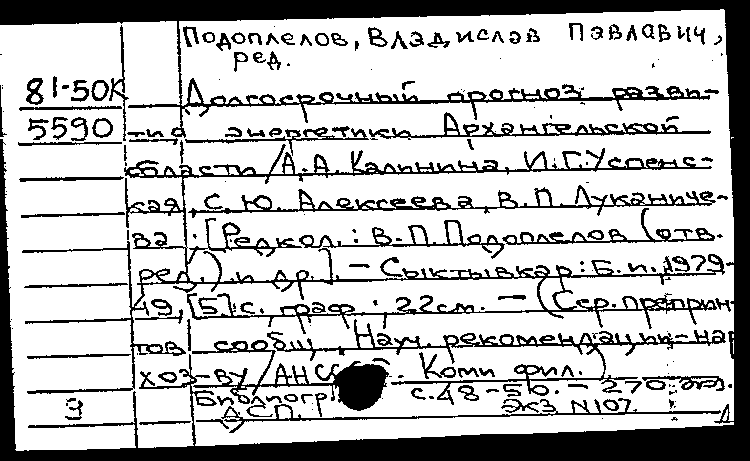 Подоплелов, Владислав Павлавич,
ред.
81-50К Долгосрочный прогноз разви-
5590 тия энергетики Архангельской
области / А. А. Калинина, И. Г. Успенс-
кая, С. Ю. Алексеева, В. П. Луканиче-
ва ; [Редкол. : В. П. Подоплелов (отв.
ред.) и др.]. — Сыктывкар : Б. и., 1979-
49, [5] с. граф. ; 22 см. — (Сер. преприн-
тов сообщ. Науч. рекомендации — нар
хоз-ву / АН СССР. Коми фил.)
Библиогр. с. 48-50. — 270 экз.
Э ДСП. Экз N107.